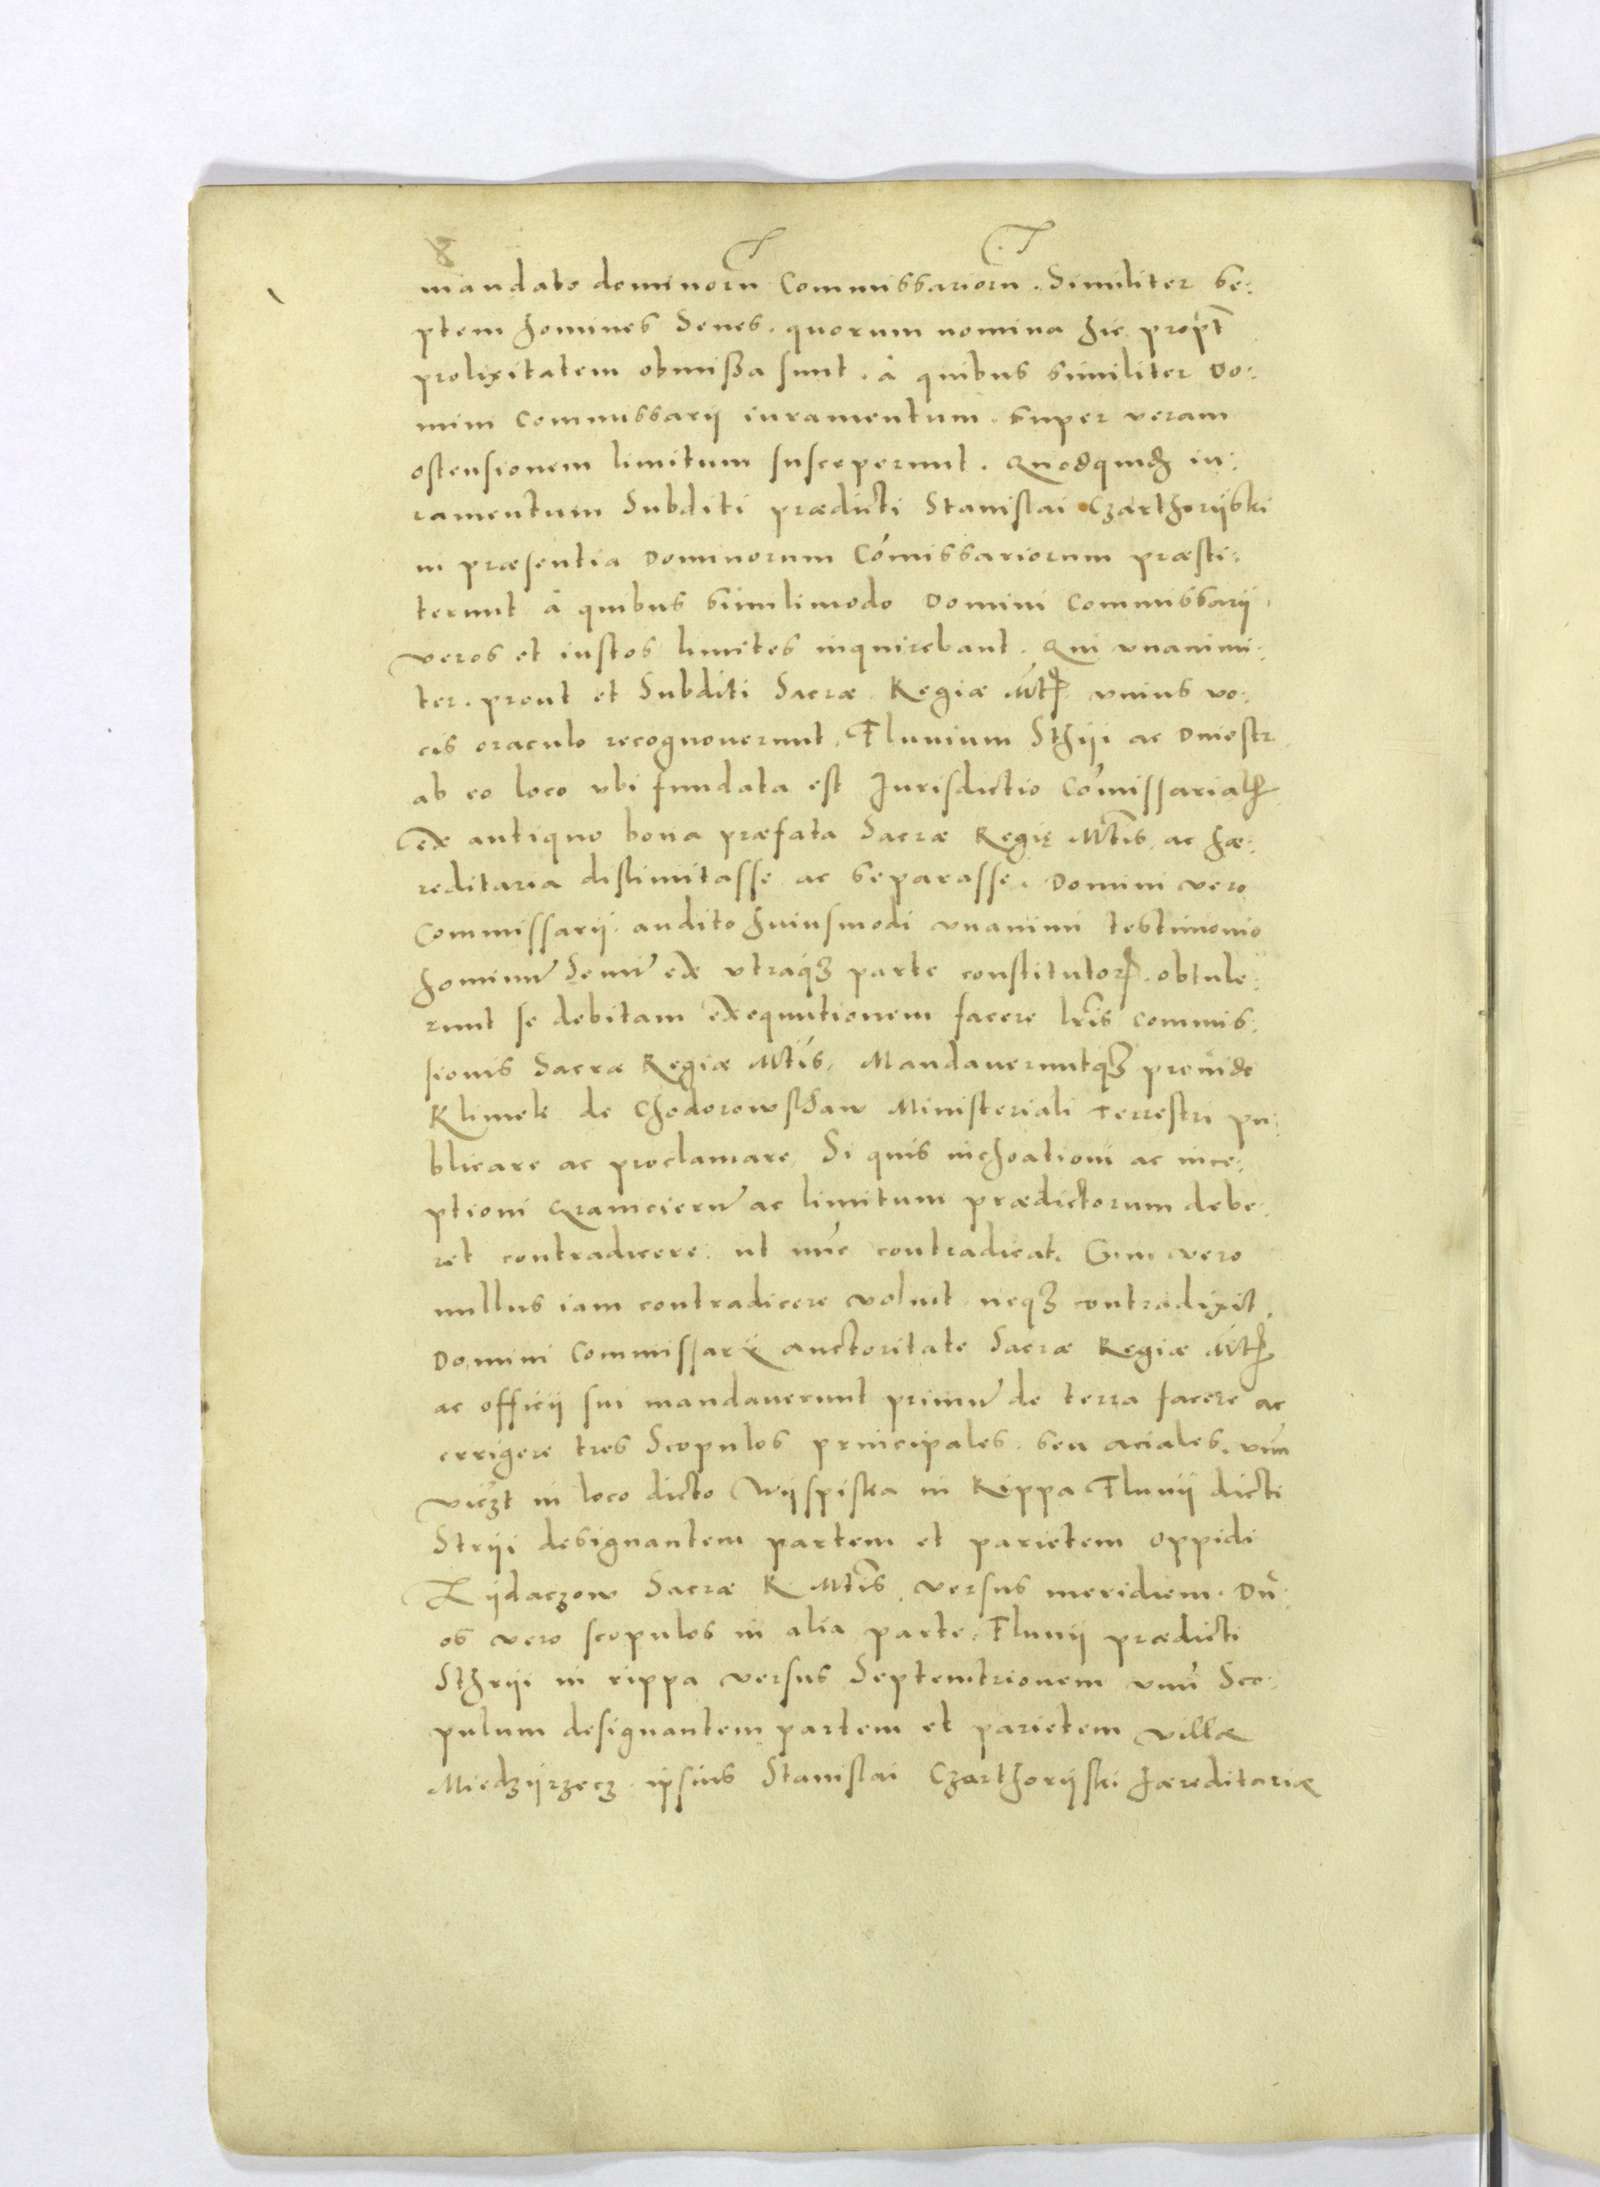 8
mandato dominorũ Commissariorũ. Similiter se:
ptem homines Senes. quorum nomina hic propt̃
prolixitatem obmißa sunt. à quibus similiter Do:
mini Commissarij iuramentum. super veram
ostensionem limitum susceperunt. Quodquidẽ iu:
ramentum Subditi prædicti Stanislai Czarthorijski
in præsentia Dominorum Cõmissariorum præsti:
terunt à quibus similimodo Domini Commissarij.
veros et iustos limites inquirebant. Qui vnanimi:
ter. prout et Subditi Sacræ Regiæ Mtis vnius vo:
cis oraculo recognouerunt, Fluuium Sthrij ac Dniestr
ab eo loco vbi fundata est Jurisdictio Cõmissarialis
ex antiquo bona præfata Sacræ Regię Mtis ac hæ:
reditaria dislimitasse ac separasse. Domini vero
Commissarij. audito huiusmodi vnanimi testimonio
hominũ Senũ ex vtraqz parte constitutoꝝ. obtule:
runt se debitam exequutionem facere lr̃is commis:
sionis Sacræ Regiæ Mtis, Mandaueruntqz prouido
Klimek de Chodorowstaw Ministeriali Terrestri pu:
blicare ac proclamare, Si quis inchoationi ac ince:
ptioni Granicierũ ac limitum prædictorum debe:
ret contradicere. ut nũc contradicat. Cum vero
nullus iam contradicere voluit neqz contradixit.
Domini Commissarij auctoritate Sacræ Regiæ Mtis
ac officij sui mandauerunt primũ de terra facere ac
errigere tres Scopulos principales. seu aciales. vnũ
viczt in loco dicto Wijspiska in Rippa Fluuij dicti
Strij designantem partem et parietem oppidi
Zijdaczow Sacræ R. Mtis versus meridiem. Du:
os vero scopulos in alia parte Fluuij prædicti
Sthrij in rippa versus Septemtrionem vnũ Sco:
pulum designantem partem et parietem villæ
Miedzijrzecz. ipsius Stanislai Czarthorijski hæreditariæ